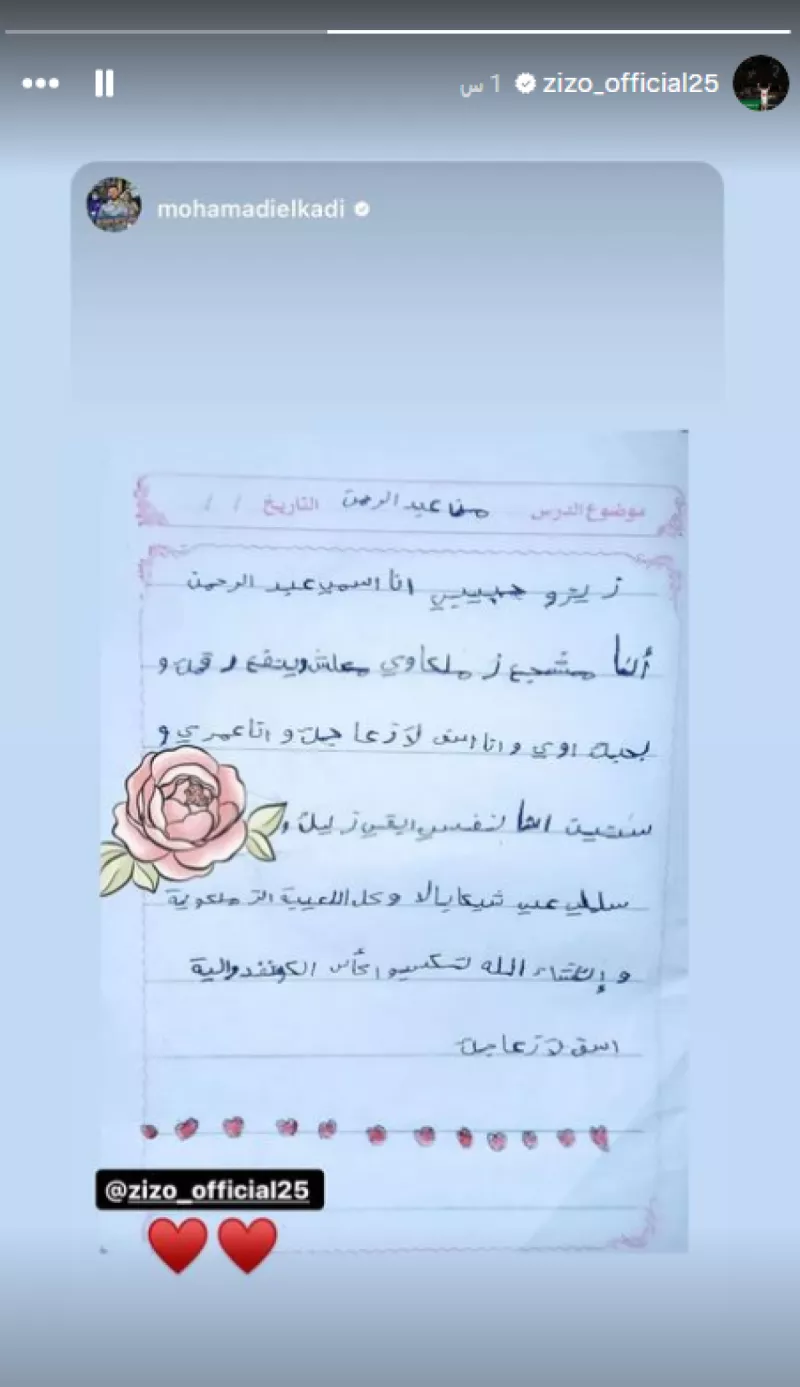 zizo_official25 1 س
mohamadielkadi
موضوع الدرس من عبد الرحمن التاريخ / /
زيزو حبيبي انا اسمي عبد الرحمن
أنا مشجع زملكاوي معلش وينفع رقمك و
بحبك اوي و انا اسف لازعاجك و انا عمري و
ستيت انها نفسي ابقي زيك و
سلملي علي شيكابالا و كل اللعيبة الزملكوية
و إنشاء الله تكسبوا كأس الكونفدوالية
اسف لازعاجك
@zizo_official25